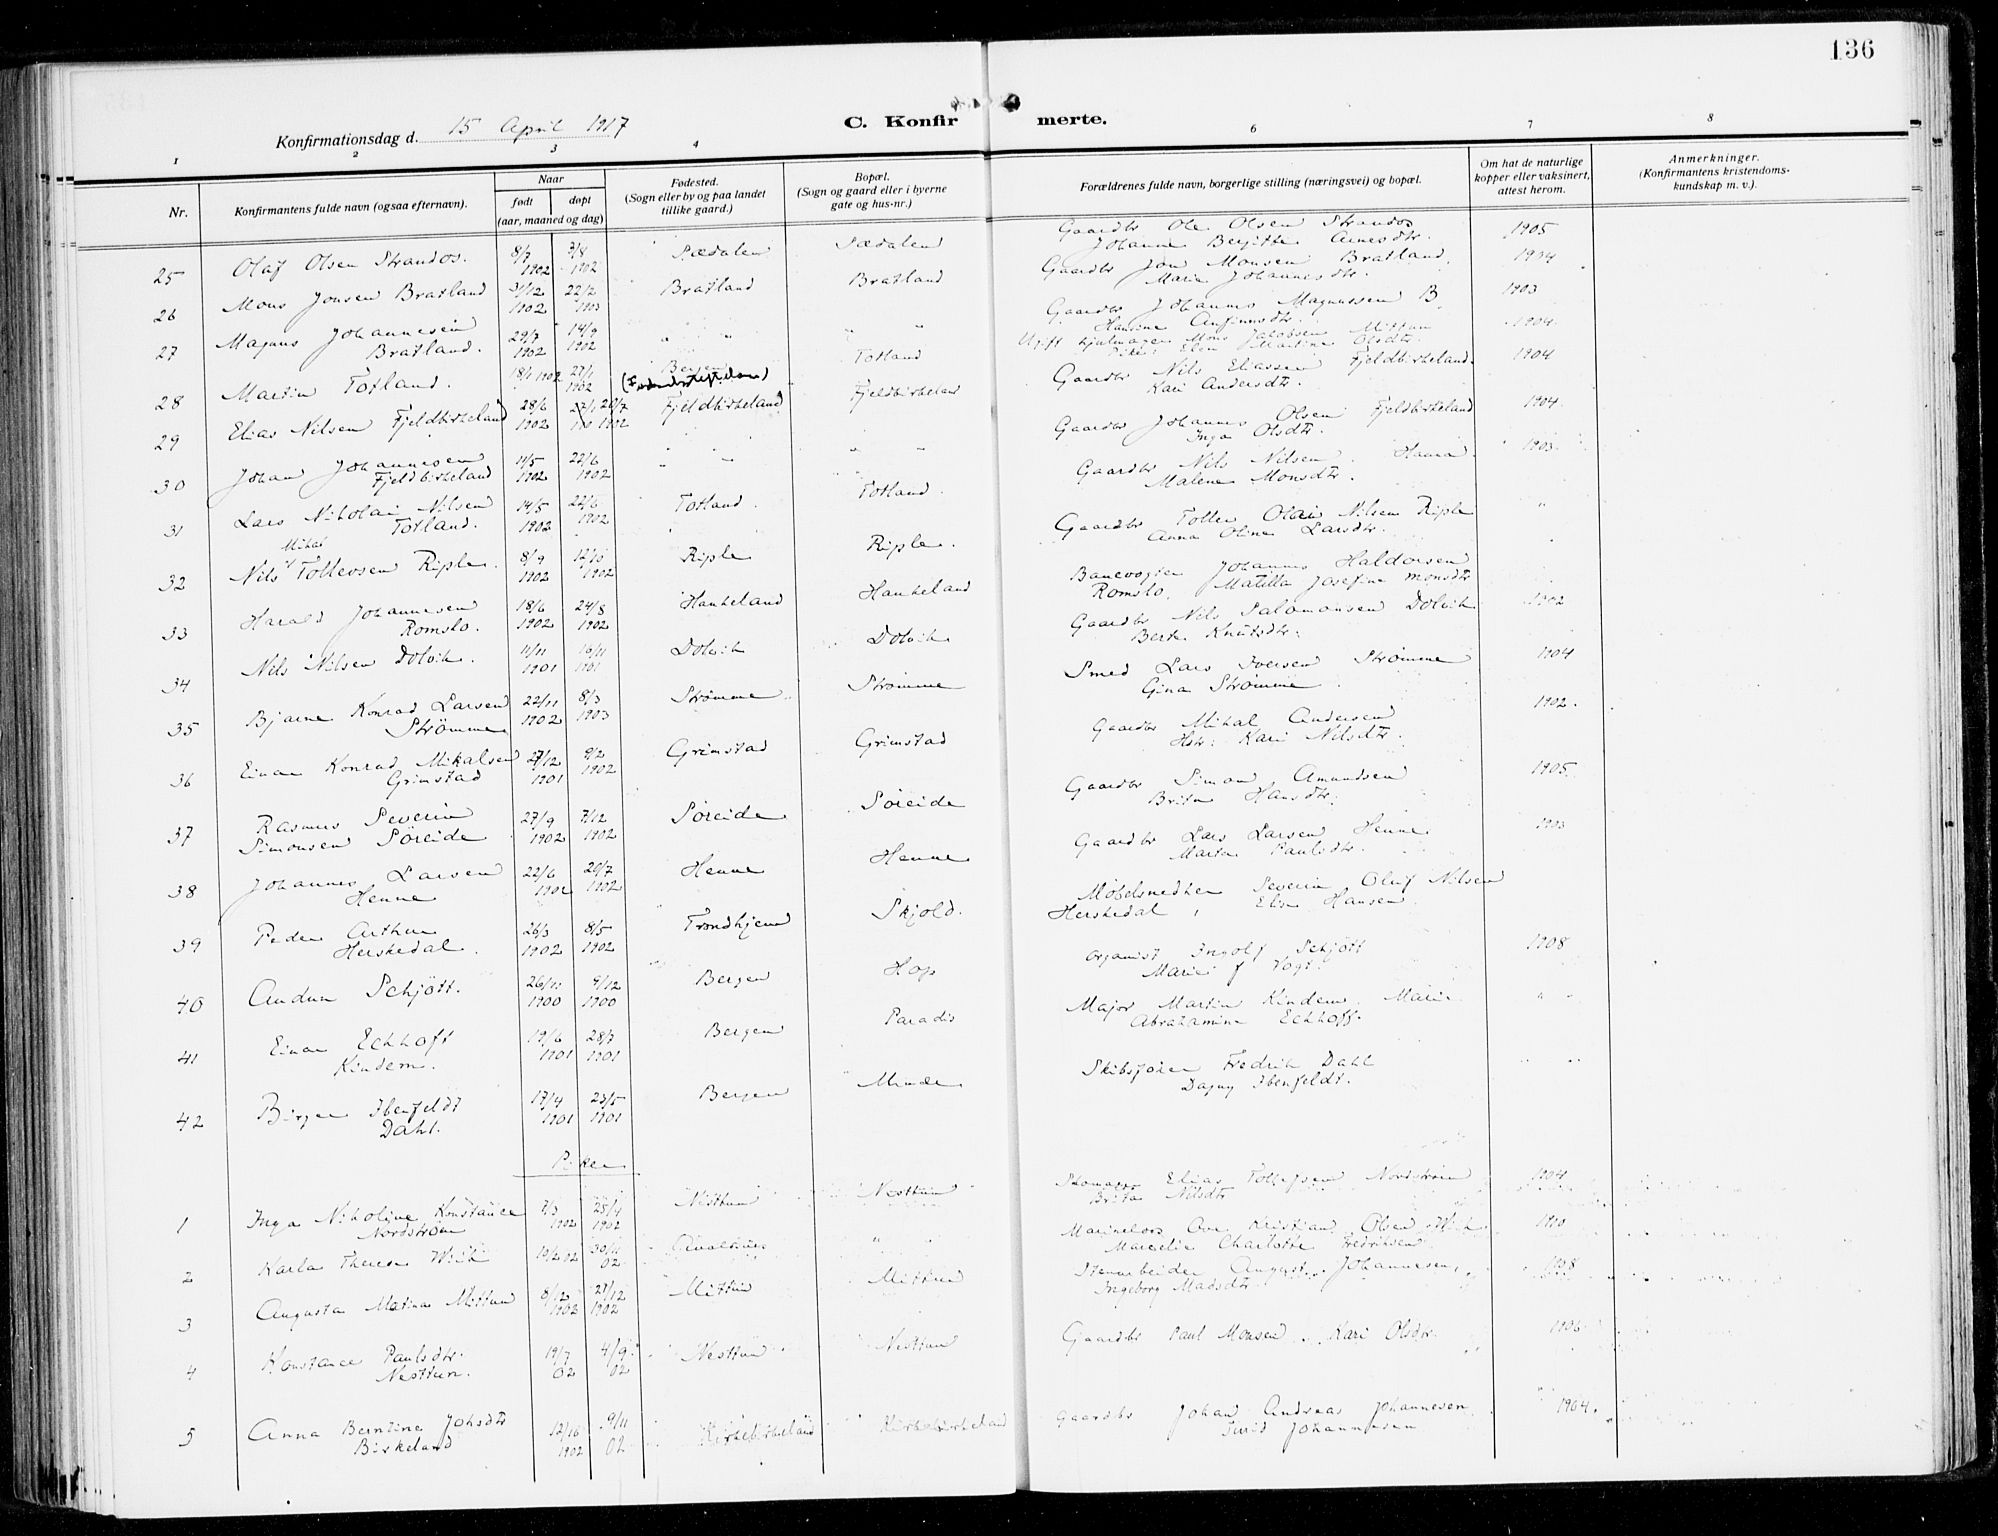 136
Konfirmationsdag d. 15 April 1917
C. Konfirmerte.
1 2 3 4 6 7 8
Nr.
Konfirmantens fulde navn (ogsaa efternavn).
Naar
født
døpt
(aar, maaned og dag)
Fødested.
(Sogn eller by og paa landet
tillike gaard.)
Bopæl.
(Sogn og gaard eller i byerne
gate og hus-nr.)
Forældrenes fulde navn, borgerlige stilling (næringsvei) og bopæl.
Om hat de naturlige
kopper eller vaksinert,
attest herom.
Anmerkninger.
(Konfirmantens kristendoms-
kundskap m. v.).
25 Olaf Olsen Strandos. 8/7 1902 3/8 1902 Sædalen Sædalen
Gaardbr Ole Olsen Strandos
Johanne Bergitte Arnesdtr. 1905
26 Mons Jonsen Bratland 31/12 1902 22/2 1903 Bratland Bratland
Gaardbr Jon Monsen Bratland.
Marie Johannesdtr. 1904
27 Magnus Johannesen
Bratland. 29/7 1902 14/9 1902 " " " "
Gaardbr Johannes Magnussen B.
Hansine Anfinnsdtr. 1903
28 Martin Totland. 18/1 1902 27/1 1902 Bergen
(Fødselsstiftelsen) Totland
Ugift Hjulmager Mons Jakobsen Mittun
Pike: Elen Martine Olsdtr. 1904
29 Elias Nilsen Fjeldbirkeland 28/6 1902 20/7 1902 Fjeldbirkeland Fjeldbirkeland
Gaardbr Nils Eliassen Fjeldbirkeland.
Kari Andersdtr. 1904
30 Johan Johannesen
Fjeldbirkeland 11/5 1902 22/6 1902 " " " "
Gaardbr Johannes Olsen Fjeldbirkeland
Inga Olsdtr. 1904
31 Lars Nikolai Nilsen
Totland. 14/5 1902 22/6 1902 Totland. Totland.
Gaardbr Nils Nilsen
Malene Monsdtr. 1903
32 Nils Mikal Tollevsen Riple. 8/9 1902 12/10 1902 Riple Riple.
Gaardbr Tollev Olai Nilsen Riple
Anna Oline Larsdtr. "
33 Harald Johannesen
Romslo. 18/6 1902 24/8 1902 Haukeland Haukeland
Banevogter Johannes Haldorsen
Romslo. Matilla Josefine Monsdtr
34 Nils Nilsen Dolvik. 11/11 1901 16/11 1901 Dolvik Dolvik
Gaardbr Nils Salomonsen Dolvik
Berte Knutsdtr. 1902
35 Bjarne Konrad Larsen
Strømme 22/11 1902 8/3 1903 Strømme Strømme
Smed Lars Iversen Strømme
Gina Strømme. 1904
36 Einar Konrad Mikalsen
Grimstad 27/12 1901 9/2 1902 Grimstad Grimstad
Gaardbr Mikal Andersen
Hstr. Kari Nilsdtr. 1902.
37 Rasmus Severin
Simonsen Søreide 27/9 1902 7/12 1902 Søreide Søreide
Gaardbr Simon Amundsen
Brita Hansdtr. 1905
38 Johannes Larsen
Henne 22/6 1902 20/7 1902 Henne Henne
Gaardbr Lars Larsen Henne
Marta Paulsdtr. 1903
39 Peder Arthur
Herskedal. 26/3 1902 8/5 1902 Trondhjem Skjold.
Møbelsnedker Severin Oluf Nilsen
Herskedal, Elise Hansen.
40 Audun Schjött. 26/11 1900 9/12 1900 Bergen Hop
Organist Ingolf Schjött
Marie f Vogt. 1908
41 Einar Eckhoff
Kindem. 19/6 1901 28/7 1901 Bergen Paradis
Major Martin Kindem. Marie
Abrahamine Eckhoff. " "
42 Birger Ibenfeldt
Dahl. 17/4 1901 23/5 1901 Bergen Minde
Skibsfører Fredrik Dahl
Dagny Ibenfeldt. " "
Piker
1 Inga Nikoline Konstance
Nordstrøm 7/3 1902 25/4 1902 Nesttun Nesttun
Skomager Elias Tollefsen Nordstrøm
Brita Nilsdtr 1904
2 Karla Therese Wiik 10/2 02 30/11 02 " "
Marinelods Ove Kristian Olsen Wiik
Marselie Charlotte Fredriksen 1910
3 Augusta Matina Mittun 8/12 1902 21/12 1902 Mittun Mittun
Stenarbeider August Johannesen,
Ingeborg Madsdtr. 1908
4 Konstance Paulsdtr.
Nesttun. 19/7 02 4/9 02 Nesttun Nesttun
Gaardbr Paul Monsen. Kari Olsdtr. 1906
5 Anna Berntine Johsdtr
Birkeland 12/10 1902 9/11 02 Kirkebirkeland Kirkebirkeland
Gaardbr Johan Andreas Johannesen
Turid Johannesen 1904.